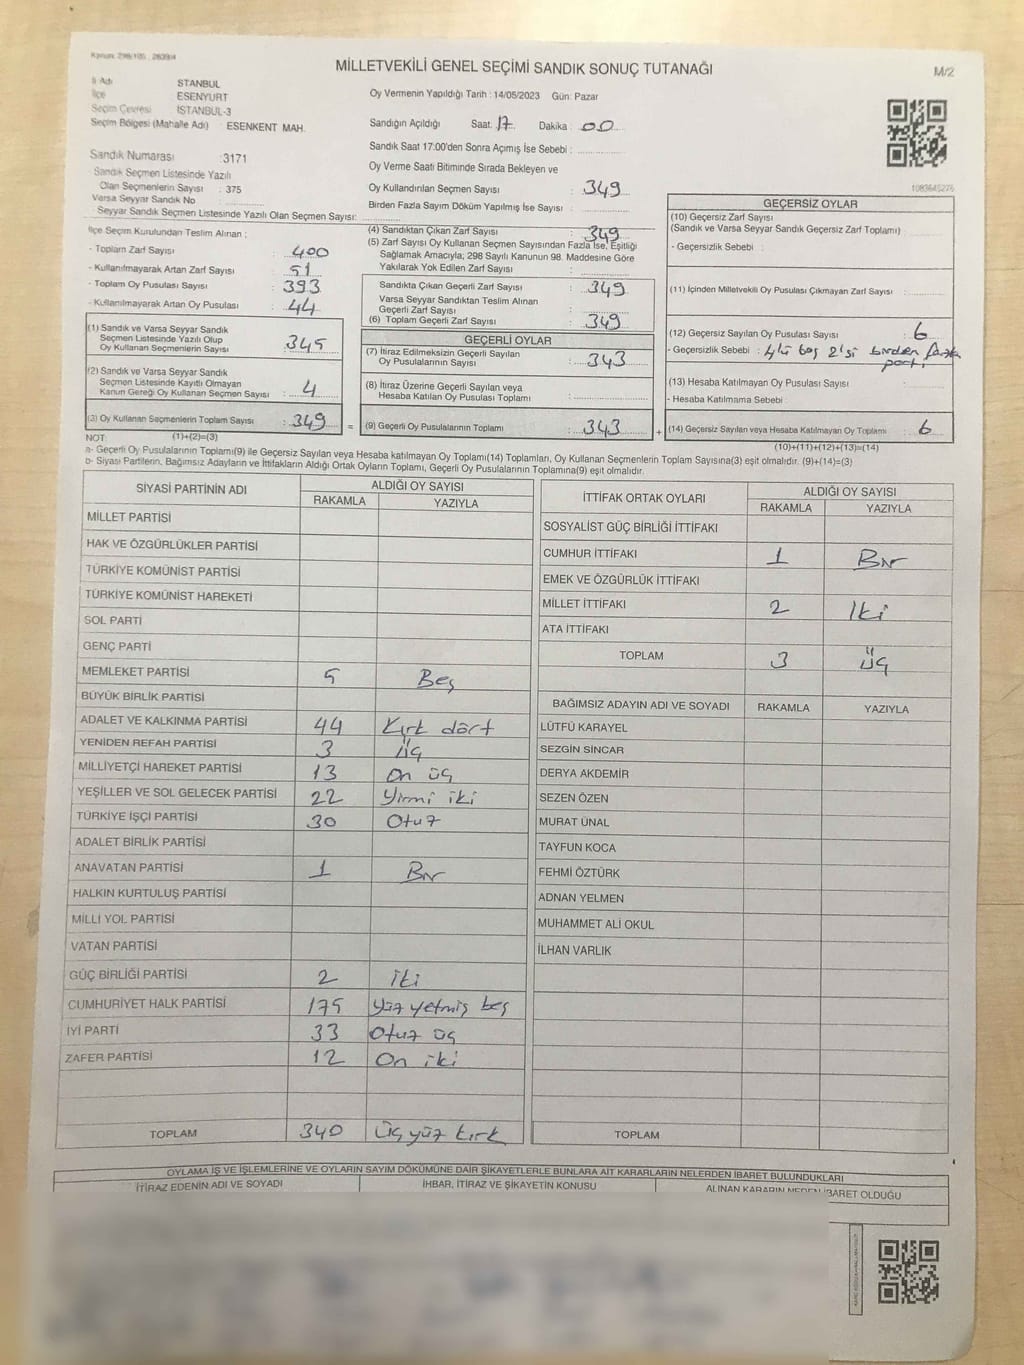 Kanun: 298/105 : 2839/4
MİLLETVEKİLİ GENEL SEÇİMİ SANDIK SONUÇ TUTANAĞI
M/2
İl Adı STANBUL
İlçe ESENYURT
Seçim Çevresi İSTANBUL-3
Seçim Bölgesi (Mahalle Adı) ESENKENT MAH.
Sandık Numarası :3171
Sandık Seçmen Listesinde Yazılı
Olan Seçmenlerin Sayısı : 375
Varsa Seyyar Sandık No
Seyyar Sandık Seçmen Listesinde Yazılı Olan Seçmen Sayısı:
Oy Vermenin Yapıldığı Tarih : 14/05/2023 Gün: Pazar
Sandığın Açıldığı Saat: 17 Dakika : 00
Sandık Saat 17:00'den Sonra Açımış İse Sebebi :
Oy Verme Saati Bitiminde Sırada Bekleyen ve
Oy Kullandırılan Seçmen Sayısı : 349
Birden Fazla Sayım Döküm Yapılmış İse Sayısı :
1083645276
İlçe Seçim Kurulundan Teslim Alınan ;
- Toplam Zarf Sayısı : 400
- Kullanılmayarak Artan Zarf Sayısı : 51
- Toplam Oy Pusulası Sayısı : 393
- Kullanılmayarak Artan Oy Pusulası : 44
(1) Sandık ve Varsa Seyyar Sandık
Seçmen Listesinde Yazılı Olup
Oy Kullanan Seçmenlerin Sayısı : 345
(2) Sandık ve Varsa Seyyar Sandık
Seçmen Listesinde Kayıtlı Olmayan
Kanun Gereği Oy Kullanan Seçmen Sayısı : 4
(3) Oy Kullanan Seçmenlerin Toplam Sayısı : 349 =
(4) Sandıktan Çıkan Zarf Sayısı : 349
(5) Zarf Sayısı Oy Kullanan Seçmen Sayısından Fazla İse, Eşitliği
Sağlamak Amacıyla, 298 Sayılı Kanunun 98. Maddesine Göre
Yakılarak Yok Edilen Zarf Sayısı :
Sandıkta Çıkan Geçerli Zarf Sayısı : 349
Varsa Seyyar Sandıktan Teslim Alınan
Geçerli Zarf Sayısı :
(6) Toplam Geçerli Zarf Sayısı : 349
GEÇERLİ OYLAR
(7) İtiraz Edilmeksizin Geçerli Sayılan
Oy Pusulalarının Sayısı : 343
(8) İtiraz Üzerine Geçerli Sayılan veya
Hesaba Katılan Oy Pusulası Toplamı :
(9) Geçerli Oy Pusulalarının Toplamı : 343 +
GEÇERSİZ OYLAR
(10) Geçersiz Zarf Sayısı
(Sandık ve Varsa Seyyar Sandık Geçersiz Zarf Toplamı) :
- Geçersizlik Sebebi :
(11) İçinden Milletvekili Oy Pusulası Çıkmayan Zarf Sayısı :
(12) Geçersiz Sayılan Oy Pusulası Sayısı : 6
- Geçersizlik Sebebi : 4'ü boş 2'si birden fazla
parti
(13) Hesaba Katılmayan Oy Pusulası Sayısı :
- Hesaba Katılmama Sebebi :
(14) Geçersiz Sayılan veya Hesaba Katılmayan Oy Toplamı : 6
NOT: (1)+(2)=(3)
(10)+(11)+(12)+(13)=(14)
a- Geçerli Oy Pusulalarının Toplamı(9) ile Geçersiz Sayılan veya Hesaba katılmayan Oy Toplamı(14) Toplamları, Oy Kullanan Seçmenlerin Toplam Sayısına(3) eşit olmalıdır. (9)+(14)=(3)
b- Siyasi Partilerin, Bağımsız Adayların ve İttifakların Aldığı Ortak Oyların Toplamı, Geçerli Oy Pusulalarının Toplamına(9) eşit olmalıdır.
SİYASİ PARTİNİN ADI ALDIĞI OY SAYISI
RAKAMLA YAZIYLA
MİLLET PARTİSİ
HAK VE ÖZGÜRLÜKLER PARTİSİ
TÜRKİYE KOMÜNİST PARTİSİ
TÜRKİYE KOMÜNİST HAREKETİ
SOL PARTİ
GENÇ PARTİ
MEMLEKET PARTİSİ 5 Beş
BÜYÜK BİRLİK PARTİSİ
ADALET VE KALKINMA PARTİSİ 44 Kırk dört
YENİDEN REFAH PARTİSİ 3 üç
MİLLİYETÇİ HAREKET PARTİSİ 13 On üç
YEŞİLLER VE SOL GELECEK PARTİSİ 22 Yirmi iki
TÜRKİYE İŞÇİ PARTİSİ 30 Otuz
ADALET BİRLİK PARTİSİ
ANAVATAN PARTİSİ 1 Bir
HALKIN KURTULUŞ PARTİSİ
MİLLİ YOL PARTİSİ
VATAN PARTİSİ
GÜÇ BİRLİĞİ PARTİSİ 2 iki
CUMHURİYET HALK PARTİSİ 175 Yüz yetmiş beş
İYİ PARTİ 33 Otuz üç
ZAFER PARTİSİ 12 On iki
TOPLAM 340 Üç yüz kırk
İTTİFAK ORTAK OYLARI ALDIĞI OY SAYISI
RAKAMLA YAZIYLA
SOSYALİST GÜÇ BİRLİĞİ İTTİFAKI
CUMHUR İTTİFAKI 1 Bir
EMEK VE ÖZGÜRLÜK İTTİFAKI
MİLLET İTTİFAKI 2 İki
ATA İTTİFAKI
TOPLAM 3 üç
BAĞIMSIZ ADAYIN ADI VE SOYADI RAKAMLA YAZIYLA
LÜTFÜ KARAYEL
SEZGİN SİNCAR
DERYA AKDEMİR
SEZEN ÖZEN
MURAT ÜNAL
TAYFUN KOCA
FEHMİ ÖZTÜRK
ADNAN YELMEN
MUHAMMET ALİ OKUL
İLHAN VARLIK
TOPLAM
OYLAMA İŞ VE İŞLEMLERİNE VE OYLARIN SAYIM DÖKÜMÜNE DAİR ŞİKAYETLERLE BUNLARA AİT KARARLARIN NELERDEN İBARET BULUNDUKLARI
İTİRAZ EDENİN ADI VE SOYADI İHBAR, İTİRAZ VE ŞİKAYETİN KONUSU ALINAN KARARIN NEDEN İBARET OLDUĞU